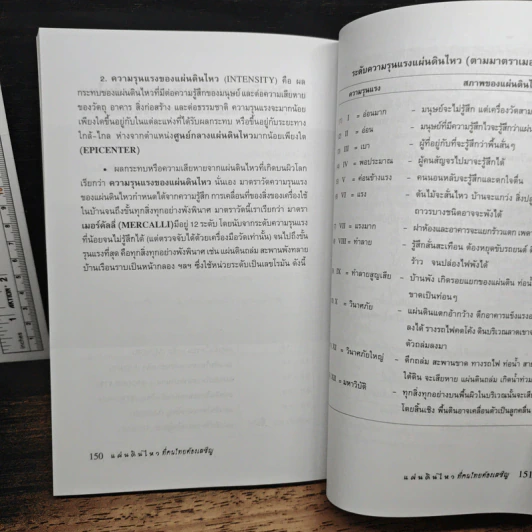 2. ความรุนแรงของแผ่นดินไหว (INTENSITY) คือ ผล
กระทบของแผ่นดินไหวที่มีต่อความรู้สึกของมนุษย์ และต่อความเสียหาย
ของวัตถุ อาคาร สิ่งก่อสร้าง และต่อธรรมชาติ ความรุนแรงจะมากน้อย
เพียงใดขึ้นอยู่กับในแต่ละแห่งที่ได้รับผลกระทบ หรือขึ้นอยู่กับระยะทาง
ใกล้-ไกล ห่างจากตำแหน่งศูนย์กลางแผ่นดินไหวมากน้อยเพียงใด
(EPICENTER)
• ผลกระทบหรือความเสียหายจากแผ่นดินไหวที่เกิดบนผิวโลก
เรียกว่า ความรุนแรงของแผ่นดินไหว นั่นเอง มาตราวัดความรุนแรง
ของแผ่นดินไหวกำหนดได้จากความรู้สึก การเคลื่อนที่ของสิ่งของเครื่องใช้
ในบ้านจนถึงขั้นทุกสิ่งทุกอย่างพังพินาศ มาตราวัดนี้เราเรียกว่า มาตรา
เมอร์คัลลี่ (MERCALLI)มีอยู่ 12 ระดับ โดยนับจากระดับความรุนแรง
ที่น้อยจนไม่รู้สึกได้ (แต่ตรวจจับได้ด้วยเครื่องมือวัดเท่านั้น) จนไปถึงขั้น
รุนแรงที่สุด คือทุกสิ่งทุกอย่างพังพินาศ เช่น แผ่นดินถล่ม สะพานพังทลาย
บ้านเรือนราบเป็นหน้ากลอง ฯลฯ ซึ่งใช้หน่วยระดับเป็นเลขโรมัน ดังนี้
150 แผ่นดินไหว ที่คนไทยต้องเผชิญ
ระดับความรุนแรงแผ่นดินไหว (ตามมาตราเมอ
ความรุนแรง สภาพของแผ่นดินไห
I = อ่อนมาก - มนุษย์จะไม่รู้สึก แต่เครื่องวัดสาม
II = อ่อน - มนุษย์ที่มีความรู้สึกไวจะรู้สึกว่าแผ่น
III = เบา - ผู้ที่อยู่กับที่จะรู้สึกว่าพื้นสั่นๆ
IV = พอประมาณ - ผู้คนสัญจรไปมาจะรู้สึกได้
V = ค่อนข้างแรง - คนนอนหลับจะรู้สึกและตกใจตื่น
VI = แรง - ต้นไม้จะสั่นไหว บ้านจะแกว่ง สิ่งปลู
ถาวรบางชนิดอาจจะพังได้
= แรงมาก - ฝาห้องและอาคารจะแยกร้าวแตก เพด
VIII = ทำลาย - รู้สึกสั่นสะเทือน ต้องหยุดขับรถยนต์
ร้าว จนปล่องไฟพังได้
IX = ทำลายสูญเสีย - บ้านพัง เกิดรอยแยกของแผ่นดิน ท่อน้ำ
ขาดเป็นท่อนๆ
X = วินาศภัย - แผ่นดินแตกอ้ากว้าง ตึกอาคารแข็งแรง
ลงได้ รางรถไฟคดโค้ง ดินบริเวณลาดเขา
ตัวถล่มลงมา
= วินาศภัยใหญ่ - ตึกถล่ม สะพานขาด ทางรถไฟ ท่อน้ำ สาย
ใต้ดิน จะเสียหาย แผ่นดินถล่ม เกิดน้ำท่วม
= มหาวิบัติ - ทุกสิ่งทุกอย่างบนพื้นผิวในบริเวณนั้นจะเสีย
โดยสิ้นเชิง พื้นดินอาจเคลื่อนตัวเป็นลูกคลื่น
แผ่นดินไหว ที่คนไทยต้องเผชิญ 151